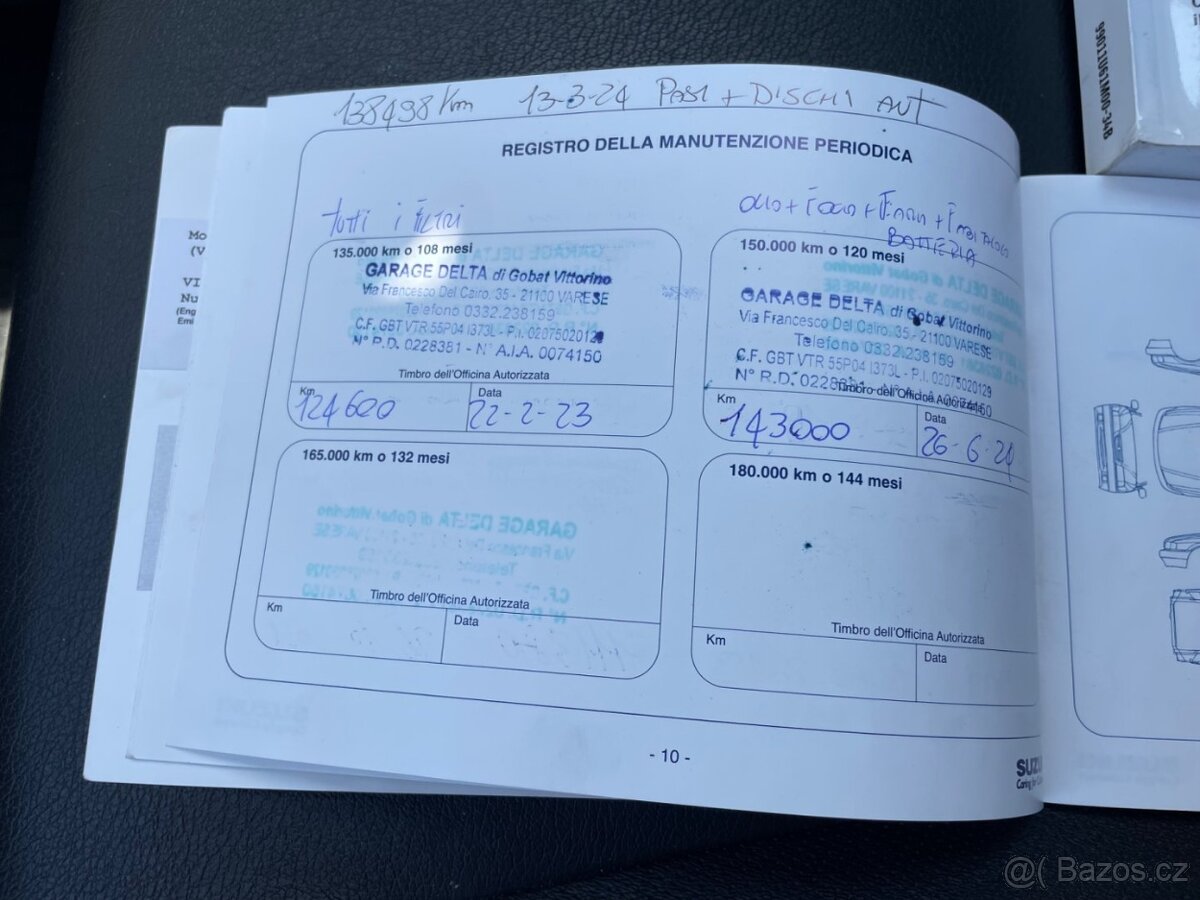 138498 Km 13-3-24 PAST + DISCHI ANT
REGISTRO DELLA MANUTENZIONE PERIODICA
TUTTI i FILTRI
135.000 km o 108 mesi
GARAGE DELTA di Gobat Vittorino
Via Francesco Del Cairo, 35 - 21100 VARESE
Telefono 0332.238159
C.F. GBT VTR 55P04 I373L - P.I. 02075020129
N° R.D. 0228381 - N° A.I.A. 0074150
Timbro dell'Officina Autorizzata
Km
124600
Data
22-2-23
BATTERIA
150.000 km o 120 mesi
GARAGE DELTA di Gobat Vittorino
Via Francesco Del Cairo, 35 - 21100 VARESE
Telefono 0332.238159
C.F. GBT VTR 55P04 I373L - P.I. 02075020129
N° R.D. 0228381 - N° A.I.A. 0074150
Timbro dell'Officina Autorizzata
Km
143000
Data
26-6-24
165.000 km o 132 mesi
Timbro dell'Officina Autorizzata
Km
Data
180.000 km o 144 mesi
Timbro dell'Officina Autorizzata
Km
Data
- 10 -
Mo
(V
VI
Nu
(Eng
Emi
99011U61M00-34B
@( Bazos.cz